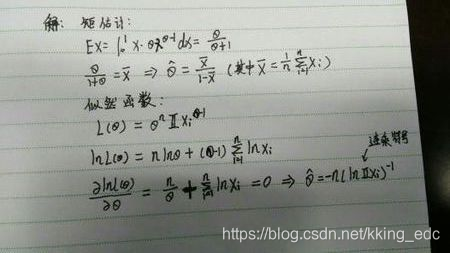 解: 矩估计:
EX= ∫₀¹ x·θx^{θ-1}dx = θ/(θ+1)
θ/(1+θ) = x̄ ⇒ θ̂ = x̄/(1-x̄) (其中 x̄ = 1/n ∑_{i=1}^{n} Xi)
似然函数:
L(θ) = θⁿ∏Xi^{θ-1}
lnL(θ) = nlnθ + (θ-1) ∑_{i=1}^{n} lnXi
连乘符号
∂lnL(θ)/∂θ = n/θ + ∑_{i=1}^{n} lnXi = 0 ⇒ θ̂ = -n(ln∏Xi)⁻¹
https://blog.csdn.net/kking_edc